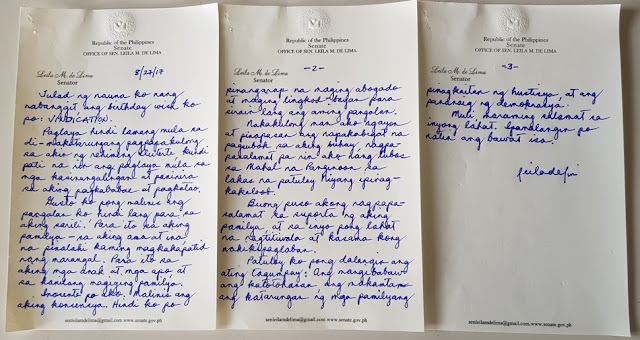 Republic of the Philippines
Senate
OFFICE OF SEN. LEILA M. DE LIMA
Leila M. de Lima
Senator
8/27/17
Tulad ng nauna ko nang
nabanggit ang birthday wish ko
po: VINDICATION.
Paglaya hindi lamang mula sa
di-makatarungang pagpapakulong
sa akin ng rehimeng Duterte kundi
pati na rin ang paglaya mula sa
mga kasinungalingan at paninira
sa aking pagkababae at pagkatao.
Gusto ko pong malinis ang
pangalan ko hindi lang para sa
aking sarili. Para ito sa aking
pamilya – sa aking ama at ina
na pinalaki kaming magkakapatid
nang marangal. Para ito sa
aking mga anak at mga apo at
sa kanilang magiging pamilya.
Inosente po ako. Malinis ang
aking konsensya. Hindi ko po
senleilamdelima@gmail.com www.senate.gov.ph
Republic of the Philippines
Senate
OFFICE OF SEN. LEILA M. DE LIMA
Leila M. de Lima
Senator
-2-
pinangarap na maging abogado
at maging lingkod-bayan para
sirain lang ang aming pangalan.
Nakakulong man ako ngayon
at pinapasan ang napakabigat na
pagsubok sa aking buhay, nagpa-
pasalamat pa rin ako nang lubos
sa Mahal na Panginoon sa
lakas na patuloy Niyang ipinag-
kakaloob.
Buong puso akong nagpapa-
salamat sa suporta ng aking
pamilya at sa inyo pong lahat
na nagtitiwala at kasama kong
nakikipaglaban.
Patuloy ko pong dalangin ang
ating tagumpay: Ang mangibabaw
ang katotohanan, ang makamtan
ang katarungan ng mga pamilyang
senleilamdelima@gmail.com www.senate.gov.ph
Republic of the Philippines
Senate
OFFICE OF SEN. LEILA M. DE LIMA
Leila M. de Lima
Senator
-3-
pinagkaitan ng hustisya, at ang
pananaig ng demokrasya.
Muli, maraming salamat sa
inyong lahat. Ipanalangin po
natin ang bawat isa.
senleilamdelima@gmail.com www.senate.gov.ph